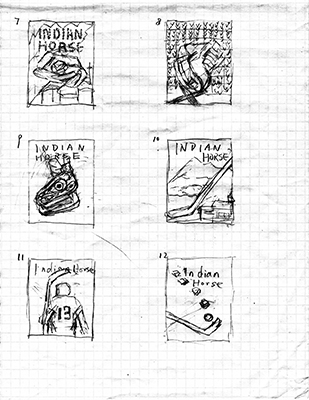 7
INDIAN
HORSE
8
9
INDIAN
HORSE
10
INDIAN
HORSE
11
Indian Horse
13
12
Indian
Horse